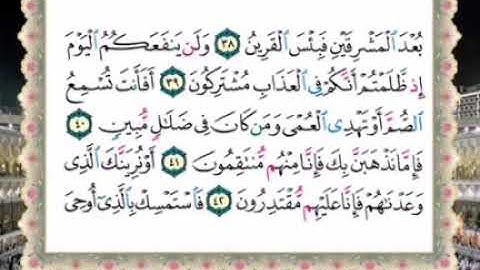 بُعْدَ الْمَشْرِقَيْنِ فَبِئْسَ الْقَرِينُ ٣٨ وَلَن يَنفَعَكُمُ الْيَوْمَ
إِذ ظَّلَمْتُمْ أَنَّكُمْ فِي الْعَذَابِ مُشْتَرِكُونَ ٣٩ أَفَأَنتَ تُسْمِعُ
الصُّمَّ أَوْ تَهْدِي الْعُمْيَ وَمَن كَانَ فِي ضَلَالٍ مُّبِينٍ ٤٠
فَإِمَّا نَذْهَبَنَّ بِكَ فَإِنَّا مِنْهُم مُّنتَقِمُونَ ٤١ أَوْ نُرِيَنَّكَ الَّذِي
وَعَدْنَاهُمْ فَإِنَّا عَلَيْهِم مُّقْتَدِرُونَ ٤٢ فَاسْتَمْسِكْ بِالَّذِي أُوحِيَ